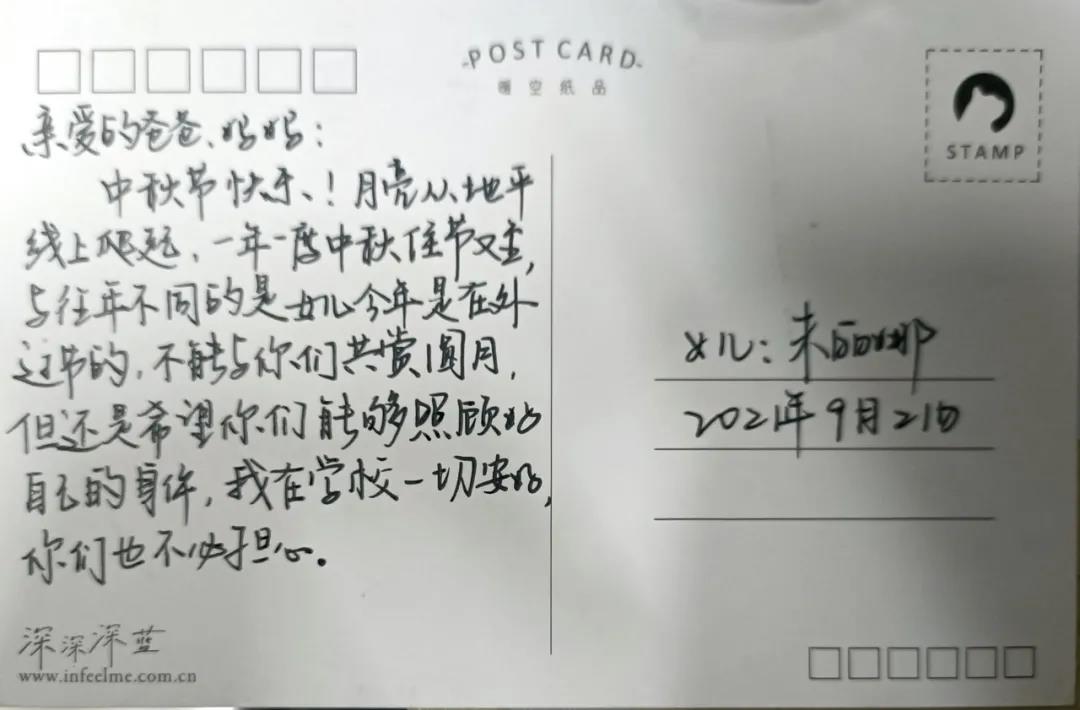 POST CARD
暖空纸品
STAMP
亲爱的爸爸、妈妈:
中秋节快乐、!月亮从地平
线上爬起、一年一度中秋佳节又至,
与往年不同的是女儿今年是在外
过节的,不能与你们共赏圆月,
但还是希望你们能够照顾好
自己的身体,我在学校一切安好,
你们也不必担心.
女儿:朱丽娜
2021年9月21日
深深深蓝
www.infeelme.com.cn